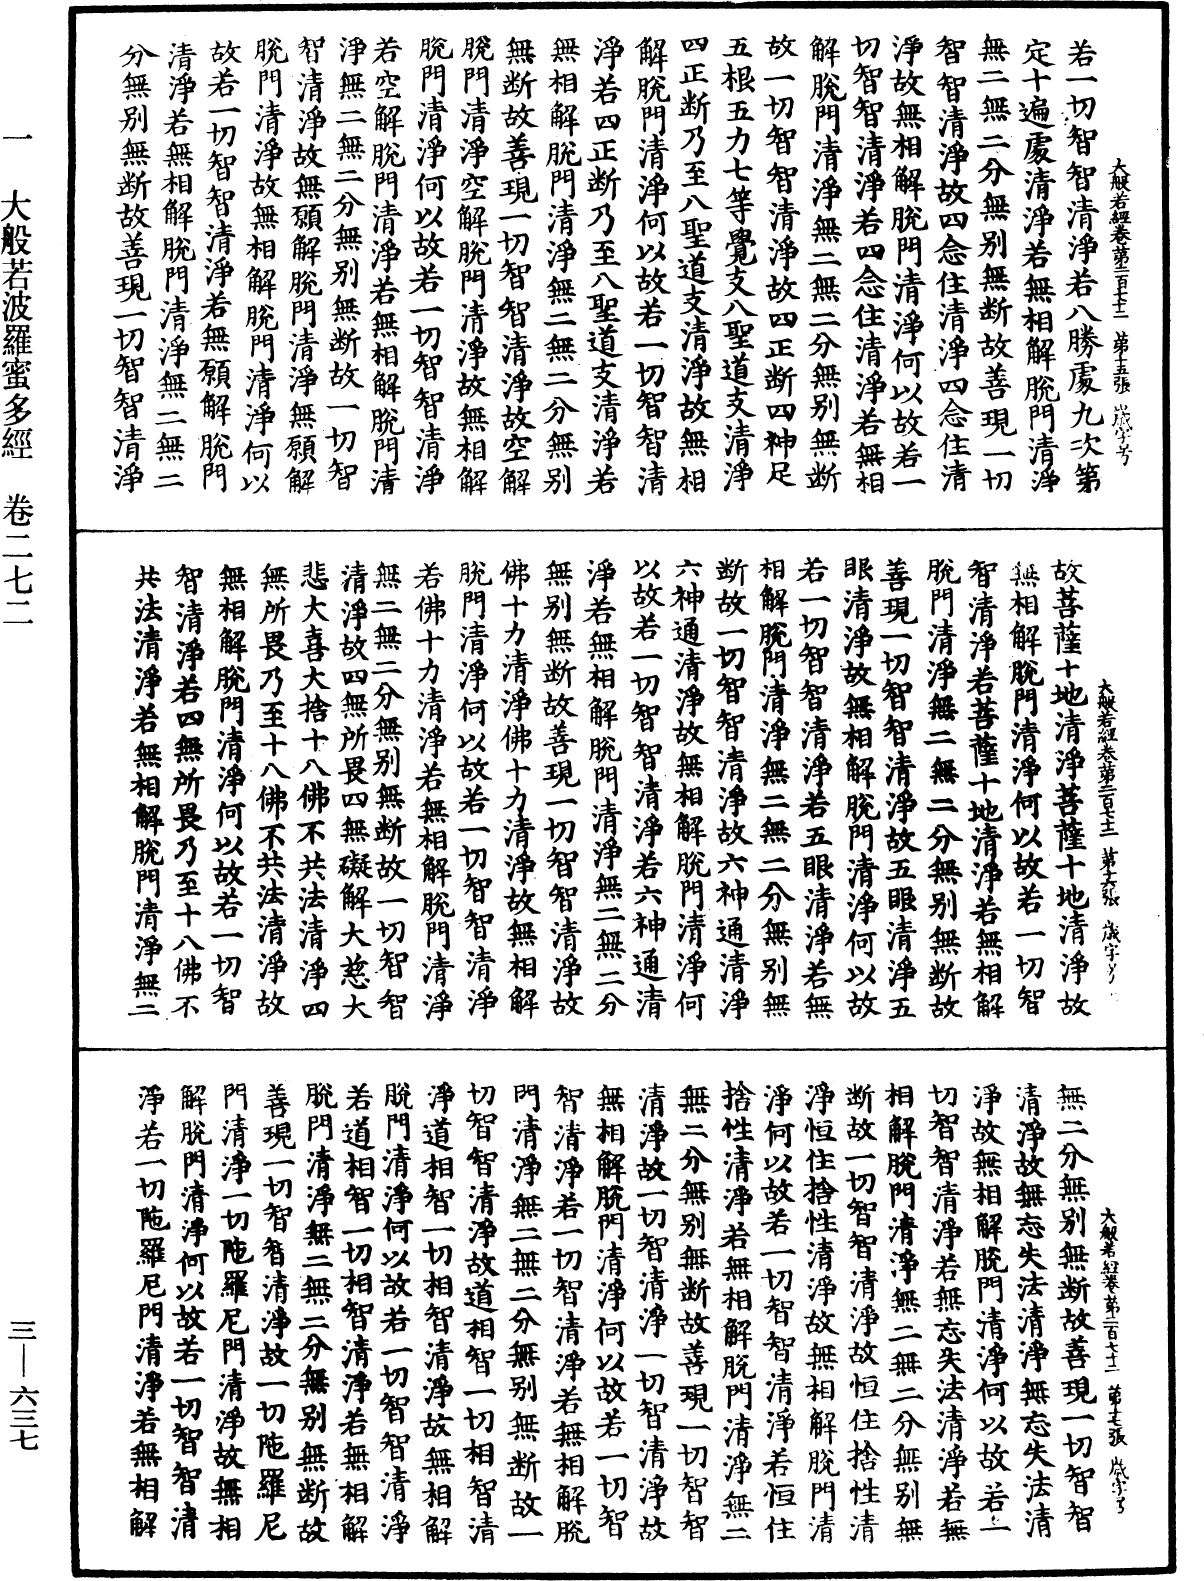 大般若經卷第二百七十二　第十五張　歲字号
若一切智智清淨若八勝處九次第
定十遍處清淨若無相解脫門清淨
無二無二分無別無斷故善現一切
智智清淨故四念住清淨四念住清
淨故無相解脫門清淨何以故若一
切智智清淨若四念住清淨若無相
解脫門清淨無二無二分無別無斷
故一切智智清淨故四正斷四神足
五根五力七等覺支八聖道支清淨
四正斷乃至八聖道支清淨故無相
解脫門清淨何以故若一切智智清
淨若四正斷乃至八聖道支清淨若
無相解脫門清淨無二無二分無別
無斷故善現一切智智清淨故空解
脫門清淨空解脫門清淨故無相解
脫門清淨何以故若一切智智清淨
若空解脫門清淨若無相解脫門清
淨無二無二分無別無斷故一切智
智清淨故無願解脫門清淨無願解
脫門清淨故無相解脫門清淨何以
故若一切智智清淨若無願解脫門
清淨若無相解脫門清淨無二無二
分無別無斷故善現一切智智清淨
大般若經卷第二百七十二　第十六張　歲字号
故菩薩十地清淨菩薩十地清淨故
無相解脫門清淨何以故若一切智
智清淨若菩薩十地清淨若無相解
脫門清淨無二無二分無別無斷故
善現一切智智清淨故五眼清淨五
眼清淨故無相解脫門清淨何以故
若一切智智清淨若五眼清淨若無
相解脫門清淨無二無二分無別無
斷故一切智智清淨故六神通清淨
六神通清淨故無相解脫門清淨何
以故若一切智智清淨若六神通清
淨若無相解脫門清淨無二無二分
無別無斷故善現一切智智清淨故
佛十力清淨佛十力清淨故無相解
脫門清淨何以故若一切智智清淨
若佛十力清淨若無相解脫門清淨
無二無二分無別無斷故一切智智
清淨故四無所畏四無礙解大慈大
悲大喜大捨十八佛不共法清淨四
無所畏乃至十八佛不共法清淨故
無相解脫門清淨何以故若一切智
智清淨若四無所畏乃至十八佛不
共法清淨若無相解脫門清淨無二
大般若經卷第二百七十二　第十七張　歲字号
無二分無別無斷故善現一切智智
清淨故無忘失法清淨無忘失法清
淨故無相解脫門清淨何以故若一
切智智清淨若無忘失法清淨若無
相解脫門清淨無二無二分無別無
斷故一切智智清淨故恒住捨性清
淨恒住捨性清淨故無相解脫門清
淨何以故若一切智智清淨若恒住
捨性清淨若無相解脫門清淨無二
無二分無別無斷故善現一切智智
清淨故一切智清淨一切智清淨故
無相解脫門清淨何以故若一切智
智清淨若一切智清淨若無相解脫
門清淨無二無二分無別無斷故一
切智智清淨故道相智一切相智清
淨道相智一切相智清淨故無相解
脫門清淨何以故若一切智智清淨
若道相智一切相智清淨若無相解
脫門清淨無二無二分無別無斷故
善現一切智智清淨故一切陁羅尼
門清淨一切陁羅尼門清淨故無相
解脫門清淨何以故若一切智智清
淨若一切陁羅尼門清淨若無相解
一　大般若波羅蜜多經　卷二七二　三—六三七